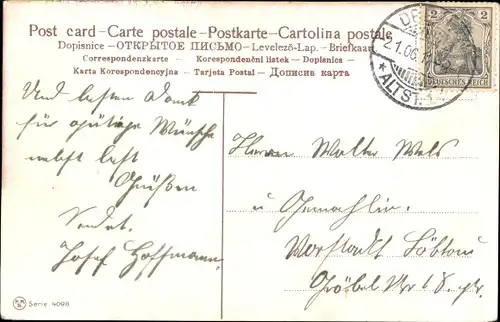 Post card - Carte postale - Postkarte - Cartolina postale
Dopisnice - ОТКРЫТОЕ ПИСЬМО - Levelező-Lap. - Briefkaart
Correspondenzkarte - Korespondenční listek - Dopisnica -
Karta Korespondencyjna - Tarjeta Postal - Дописна карта
2 2
DEUTSCHES REICH
2.1.06.
* ALTST.
Und besten Dank
für gütige Wünsche
nebst best
Grüßen
Sendet
Josef Hoffmann
Herrn Walter Wels
u Gemahlin.
Vorstadt Löbtau
Gröbel 18.
Serie 4098